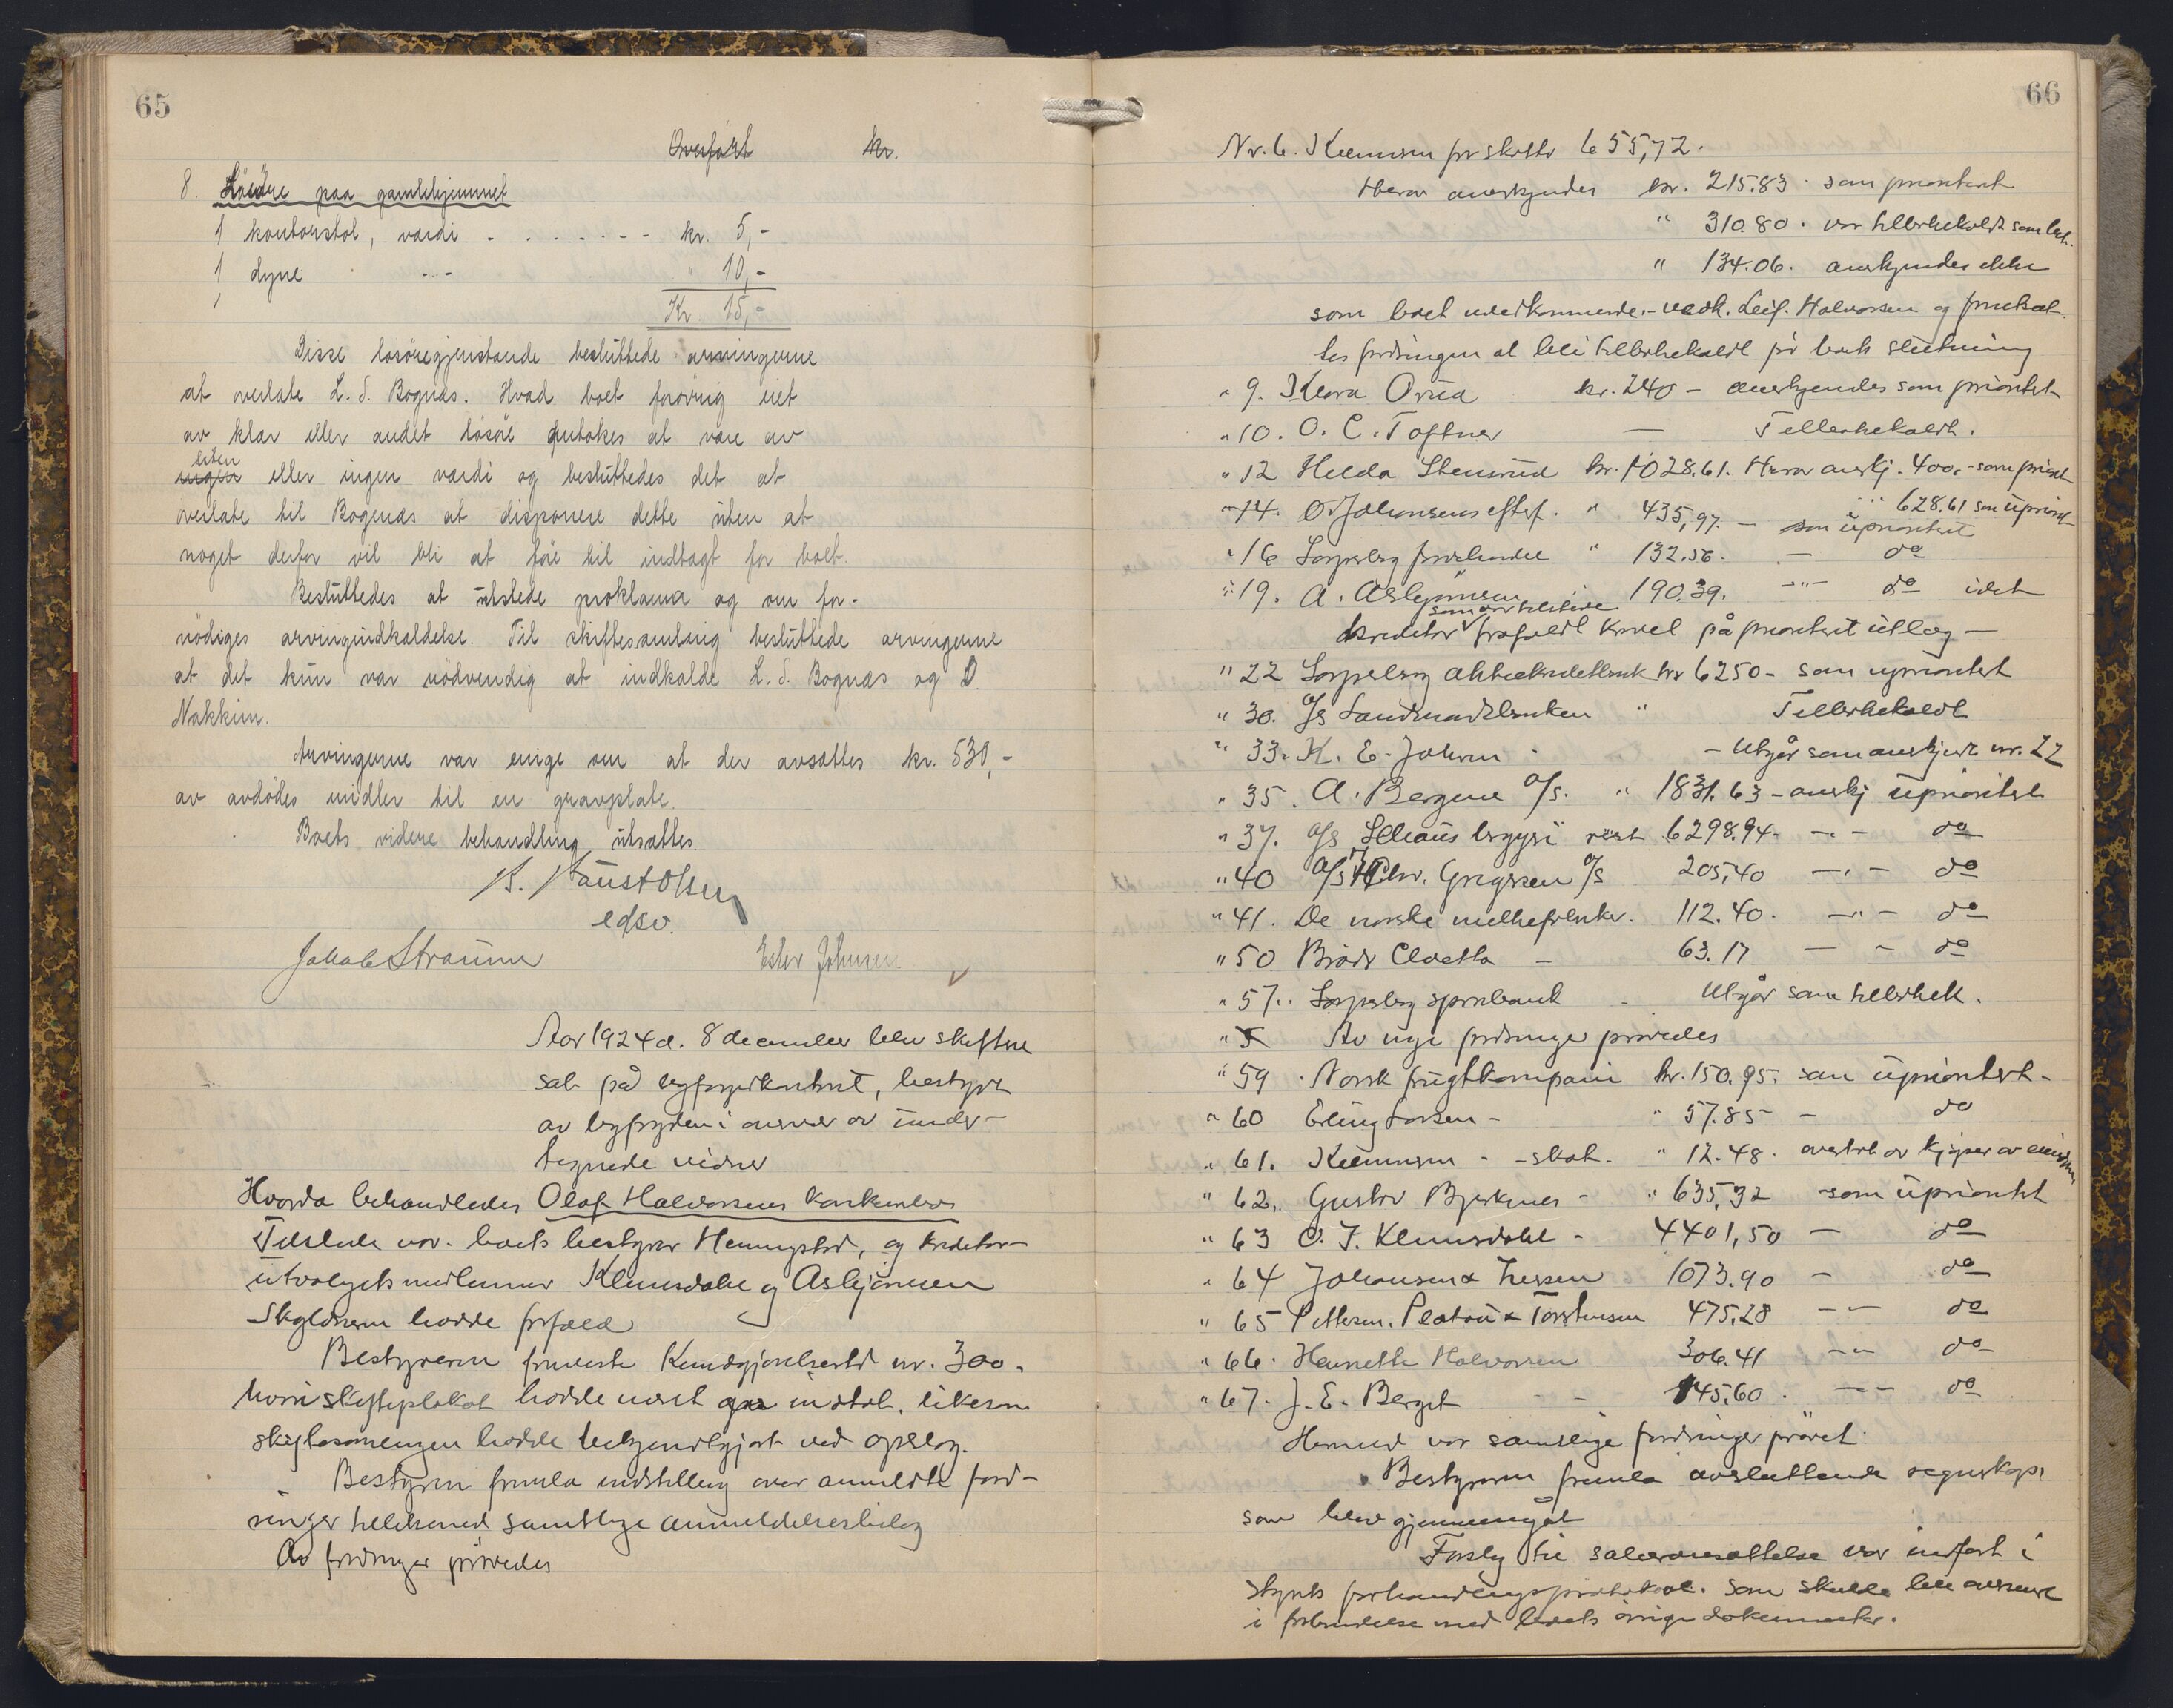 65
Overført kr.
8. Løsøre paa gamlehjemmet
1 kontorstol, værdi - . . . . - - kr. 5,-
1 dyne -..- " 10,-
Kr. 15,-
Disse løsøregjenstande besluttede arvingerne
at overlate L. S. Bognæs. Hvad boet forøvrig eiet
av klær eller andet løsøre antokes at være av
liten
ingen eller ingen værdi og besluttedes det at
overlate til Bogenæs at disponere dette uten at
noget derfor vil bli at føre til indtægt for boet.
Besluttedes at utstede proklama og om for-
nødiges arvingindkaldelse. Til skiftesamling besluttede arvingerne
at det kun var nødvendig at indkalde L. S. Bognæs og O.
Nakkim.
Arvingerne var enige om at der avsættes kr. 530,-
av avdødes midler til en gravplate.
Boets videre behandling utsættes.
K. Faust Olsen
edsv.
Jakob Straume Ester Johnsen
Aar 1924 d. 8 december blev skifteret
sat på byfogedkontoret, bestyrt
av byfogden i overvær av under-
tegnede vidner
Hvorda behandledes Olaf Halvorsens konkursbo
Tilstede var boets bestyrer Henningstad, og kreditor-
utvalgets medlemmer Klemsdahl og Asbjørnsen
Skyldneren hadde forfald
Bestyreren fremla Kundgjørelsestid nr. 300.
hvori skifteplakat hadde været indtat, likesom
skiftesamlingen hadde bekjendtgjort ved opslag.
Bestyreren fremla indstilling over anmeldte ford-
ringer tillikemed samtlige anmeldelsesbilag
Av fordringer prøvedes
66
Nr. 6. Kemneren for skatte 655,72.
Herav anerkjendes kr. 215.83 som prioritert
" 310.80. var tilbakekaldt som bet.
" 134.06. anerkjendes ikke
som boet uvedkommende - vedk. Leif Halvorsen og
les fordringen at bli tilbakekaldt på boets slutning
" 9. Klara Orud kr. 240 - anerkjendes som prioritet
" 10. O. C. Toftner — Tilbakekaldt.
" 12 Helda Stensrud kr. 1028.61. Herav anerkj. 400,- som priorit
" 628.61 som uprioritet
" 14. O. Johansens efterf. " 435,97. — som uprioritert
" 16 Sarpsborg " 132.56. — do
" 19. A. Asbjørnsen 190.39. —"— do idet
som var tilstede
kreditor frafaldt krav på prioritert utlæg —
" 22 Sarpsborg aktiekreditbank kr 6250- som uprioritert
" 30. A/S Landmandsbanken " Tilbakekaldt
" 33. K. E. Johnsen - - Utgår som anerkjent nr. 22
" 35. A. Bergene A/S. " 1831.63 - anerkj uprioritert
" 37. A/S bryggeri rest 6298.94- -"- do
" 40 A/S Chr. Gregersen A/S 205,40 -"- do
" 41. De norske melkefabriker. 112.40. -"- do
" 50 Brødr Cloetta - 63.17 - - do
" 57. Sarpsborg sparebank - Utgår som tilbakek.
" Av nye fordringer prøvedes
" 59 Norsk frugtkompani kr. 150.95. som uprioritert -
" 60 Erling Larsen - " 57.85 - do
" 61. Kemneren - - skat. " 12.48. overtat av kjøper av eiendom
" 62. Gustav Bjerknes - " 635,32 som uprioritet
" 63 O. J. Klemsdahl - 4401,50 — do
" 64 Johansen & Liessen 1073.90 — do
" 65 Pettersen, Platou & Torstensen 475,28 -"- do
" 66. Henriette Halvorsen 306.41 -"- do
" 67. J. E. Berget - - 145,60. - - do
Hermed var samtlige fordringer prøvet.
Bestyreren fremla avsluttende regnskap,
som blev gjennemgåt
Forslag til salæransættelse var indført i
styrets forhandlingsprotokol. som skulde bli oversendt
i forbindelse med boets øvrige dokumenter.